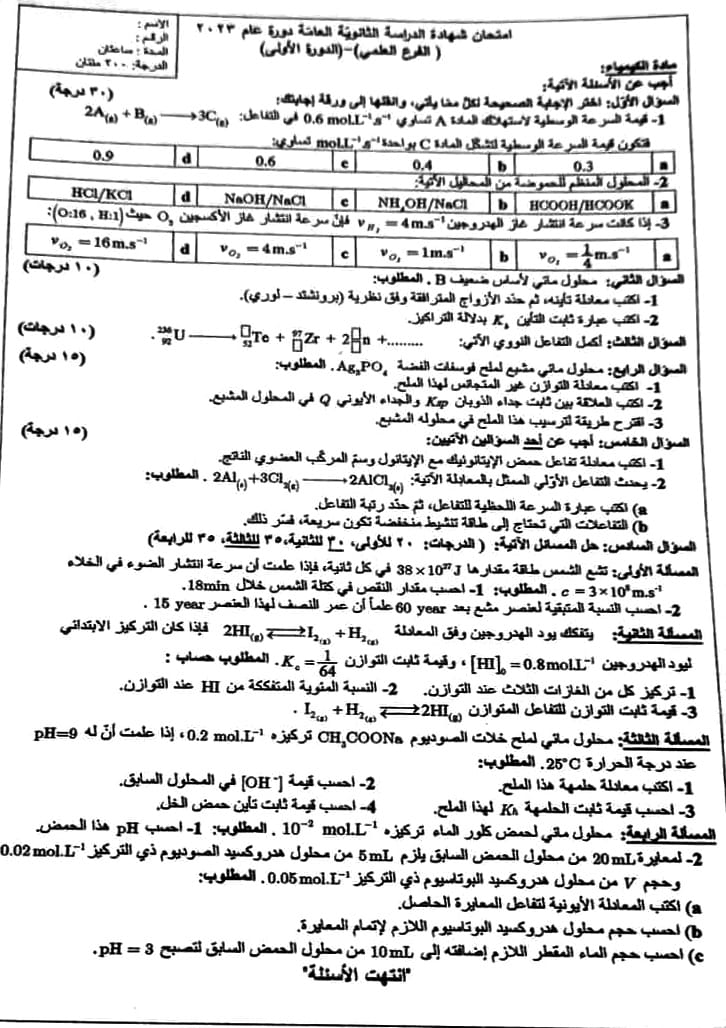 امتحان شهادة الدراسة الثانوية العامة دورة عام ٢٠٢٣
( الفرع العلمي)-(الدورة الأولى)
الاسم :
الرقم :
المدة : ساعتان
الدرجة: ٢٠٠ مئتان
مادة الكيمياء:
أجب عن الأسئلة الآتية:
السؤال الأول: اختر الإجابة الصحيحة لكل مما يأتي، وانقلها إلى ورقة إجابتك: (٣٠ درجة)
1- قيمة السرعة الوسطية لاستهلاك المادة A تساوي 0.6 mol.L⁻¹.s⁻¹ في التفاعل: 2A(g) + B(g) ⟶ 3C(g)
فتكون قيمة السرعة الوسطية لتشكل المادة C بواحدة mol.L⁻¹.s⁻¹ تساوي:
a 0.3 b 0.4 c 0.6 d 0.9
2- المحلول المنظم للحموضة من المحاليل الآتية:
a HCOOH/HCOOK b NH₄OH/NaCl c NaOH/NaCl d HCl/KCl
3- إذا كانت سرعة انتشار غاز الهدروجين v_H₂ = 4m.s⁻¹ فإن سرعة انتشار غاز الأكسجين O₂ حيث (O:16 , H:1):
a v_O₂ = 1/4 m.s⁻¹ b v_O₂ = 1m.s⁻¹ c v_O₂ = 4m.s⁻¹ d v_O₂ = 16m.s⁻¹
السؤال الثاني: محلول مائي لأساس ضعيف B . المطلوب: (١٠ درجات)
1- اكتب معادلة تأينه، ثم حدد الأزواج المترافقة وفق نظرية (برونشتد – لوري).
2- اكتب عبارة ثابت التأين K_b بدلالة التراكيز.
السؤال الثالث: أكمل التفاعل النووي الآتي: ²³⁸₉₂U ⟶ □₅₂Te + ⁹⁷□Zr + 2□□n +......... . (١٠ درجات)
السؤال الرابع: محلول مائي مشبع لملح فوسفات الفضة Ag₃PO₄ . المطلوب: (١٥ درجة)
1- اكتب معادلة التوازن غير المتجانس لهذا الملح.
2- اكتب العلاقة بين ثابت جداء الذوبان Ksp والجداء الأيوني Q في المحلول المشبع.
3- اقترح طريقة لترسيب هذا الملح في محلوله المشبع.
السؤال الخامس: أجب عن أحد السؤالين الآتيين: (١٥ درجة)
1- اكتب معادلة تفاعل حمض الإيتانوئيك مع الإيتانول وسمّ المركب العضوي الناتج.
2- يحدث التفاعل الأولي الممثل بالمعادلة الآتية: 2Al(s)+3Cl₂(g) ⟶ 2AlCl₃(s) . المطلوب:
a) اكتب عبارة السرعة اللحظية للتفاعل، ثم حدد رتبة التفاعل.
b) التفاعلات التي تحتاج إلى طاقة تنشيط منخفضة تكون سريعة، فسّر ذلك.
السؤال السادس: حل المسائل الآتية: ( الدرجات: ٢٠ للأولى، ٣٠ للثانية،٣٥ للثالثة، ٣٥ للرابعة)
المسألة الأولى: تشع الشمس طاقة مقدارها 38×10²⁷J في كل ثانية، فإذا علمت أن سرعة انتشار الضوء في الخلاء
c = 3×10⁸m.s⁻¹ . المطلوب: 1- احسب مقدار النقص في كتلة الشمس خلال 18min.
2- احسب النسبة المتبقية لعنصر مشع بعد 60 year علماً أن عمر النصف لهذا العنصر 15 year .
المسألة الثانية: يتفكك يود الهدروجين وفق المعادلة 2HI(g) ⇌ I₂(g) + H₂(g) فإذا كان التركيز الابتدائي
ليود الهدروجين [HI]₀ = 0.8mol.L⁻¹ ، وقيمة ثابت التوازن K_c = 1/64 . المطلوب حساب :
1- تركيز كل من الغازات الثلاث عند التوازن. 2- النسبة المئوية المتفككة من HI عند التوازن.
3- قيمة ثابت التوازن للتفاعل المتوازن I₂(g) + H₂(g) ⇌ 2HI(g) .
المسألة الثالثة: محلول مائي لملح خلات الصوديوم CH₃COONa تركيزه 0.2 mol.L⁻¹ ، إذا علمت أنّ له pH=9
عند درجة الحرارة 25°C. المطلوب:
1- اكتب معادلة حلمهة هذا الملح. 2- احسب قيمة [OH⁻] في المحلول السابق.
3- احسب قيمة ثابت الحلمهة Kh لهذا الملح. 4- احسب قيمة ثابت تأين حمض الخل.
المسألة الرابعة: محلول مائي لحمض كلور الماء تركيزه 10⁻² mol.L⁻¹ . المطلوب: 1- احسب pH هذا الحمض.
2- لمعايرة 20mL من محلول الحمض السابق يلزم 5mL من محلول هدروكسيد الصوديوم ذي التركيز 0.02mol.L⁻¹
وحجم V من محلول هدروكسيد البوتاسيوم ذي التركيز 0.05mol.L⁻¹. المطلوب:
a) اكتب المعادلة الأيونية لتفاعل المعايرة الحاصل.
b) احسب حجم محلول هدروكسيد البوتاسيوم اللازم لإتمام المعايرة.
c) احسب حجم الماء المقطر اللازم إضافته إلى 10mL من محلول الحمض السابق لتصبح pH = 3.
"انتهت الأسئلة"